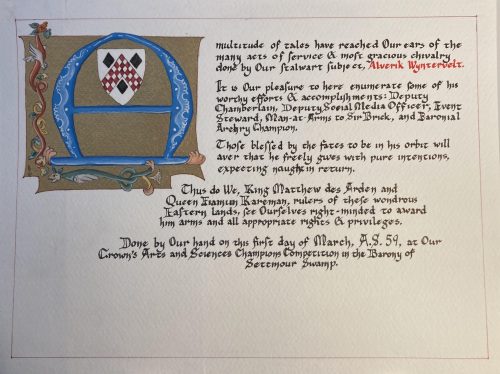 A multitude of tales have reached Our ears of the
many acts of service & most gracious chivalry
done by Our stalwart subject, Alverik Wyntervelt.
It is Our pleasure to here enumerate some of his
worthy efforts & accomplishments: Deputy
Chamberlain, Deputy Social Media Officer, Event
Steward, Man-at-Arms to Sir Brick, and Baronial
Archry Champion.
Those blessed by the fates to be in his orbit will
aver that he freely gives with pure intentions,
expecting naught in return.
Thus do We, King Matthew des Arden and
Queen Kareman, rulers of these wondrous
Eastern lands, see Ourselves right-minded to award
him arms and all appropriate rights & privileges.
Done by Our hand on this first day of March, A.S. 59, at Our
Crown's Arts and Sciences Champions Competition in the Barony of
Settmour Swamp.